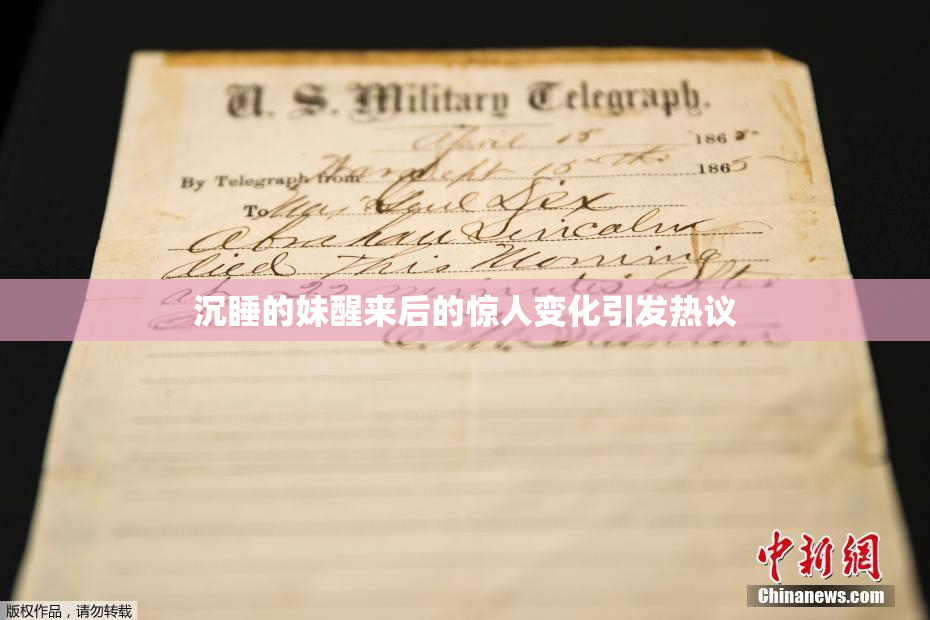 U. S. Military Telegraph.
April 15 1865
By Telegraph from War Dept 15th 1865
To Maj Genl Dix
Abraham Lincoln
died This Morning
at 22 minutes after
沉睡的妹醒来后的惊人变化引发热议
中新网
Chinanews.com
版权作品,请勿转载